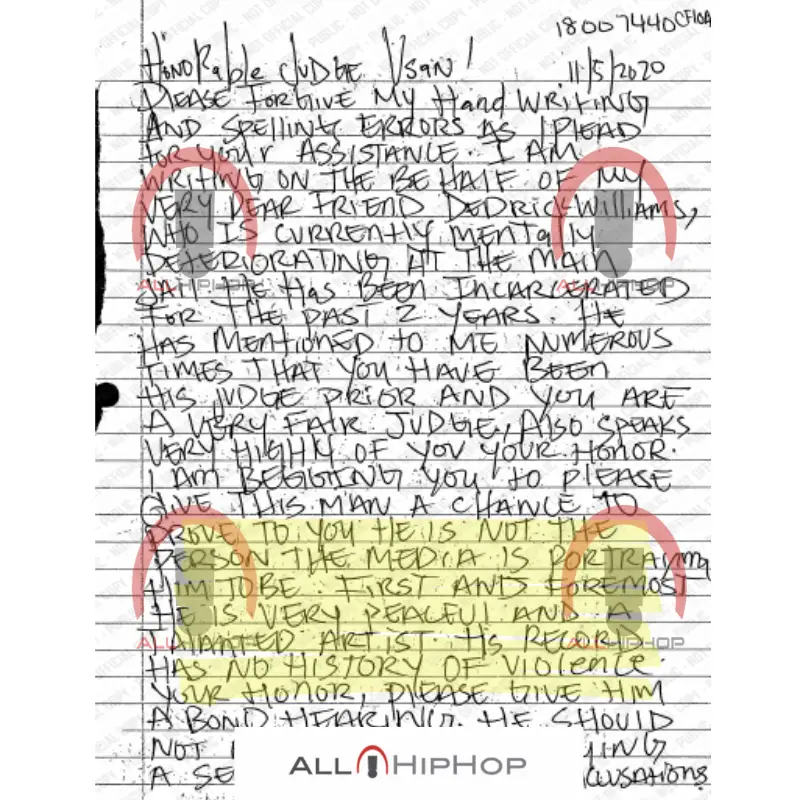 18007440CF10A
Honorable Judge Usan! 11/5/2020
Please forgive my hand writing
and spelling errors as I plead
for your assistance. I am
writing on the be half of my
very dear friend Dedrick Williams,
who is currently mentally
deteriorating at the main
jail. He has been incarcerated
for the past 2 years. He
has mentioned to me numerous
times that you have been
his judge prior and you are
a very fair judge, Also speaks
very highly of you your honor.
I am begging you to please
give this man a chance to
prove to you he is not the
person the media is portraying
him to be. First and foremost
he is very peaceful and a
artist. His record
has no history of violence.
Your honor, please give him
a bond hearing. He should
not
a
ALLHIPHOP
ALLHIPHOP
ALLHIPHOP
ALLHIPHOP
ALLHIPHOP